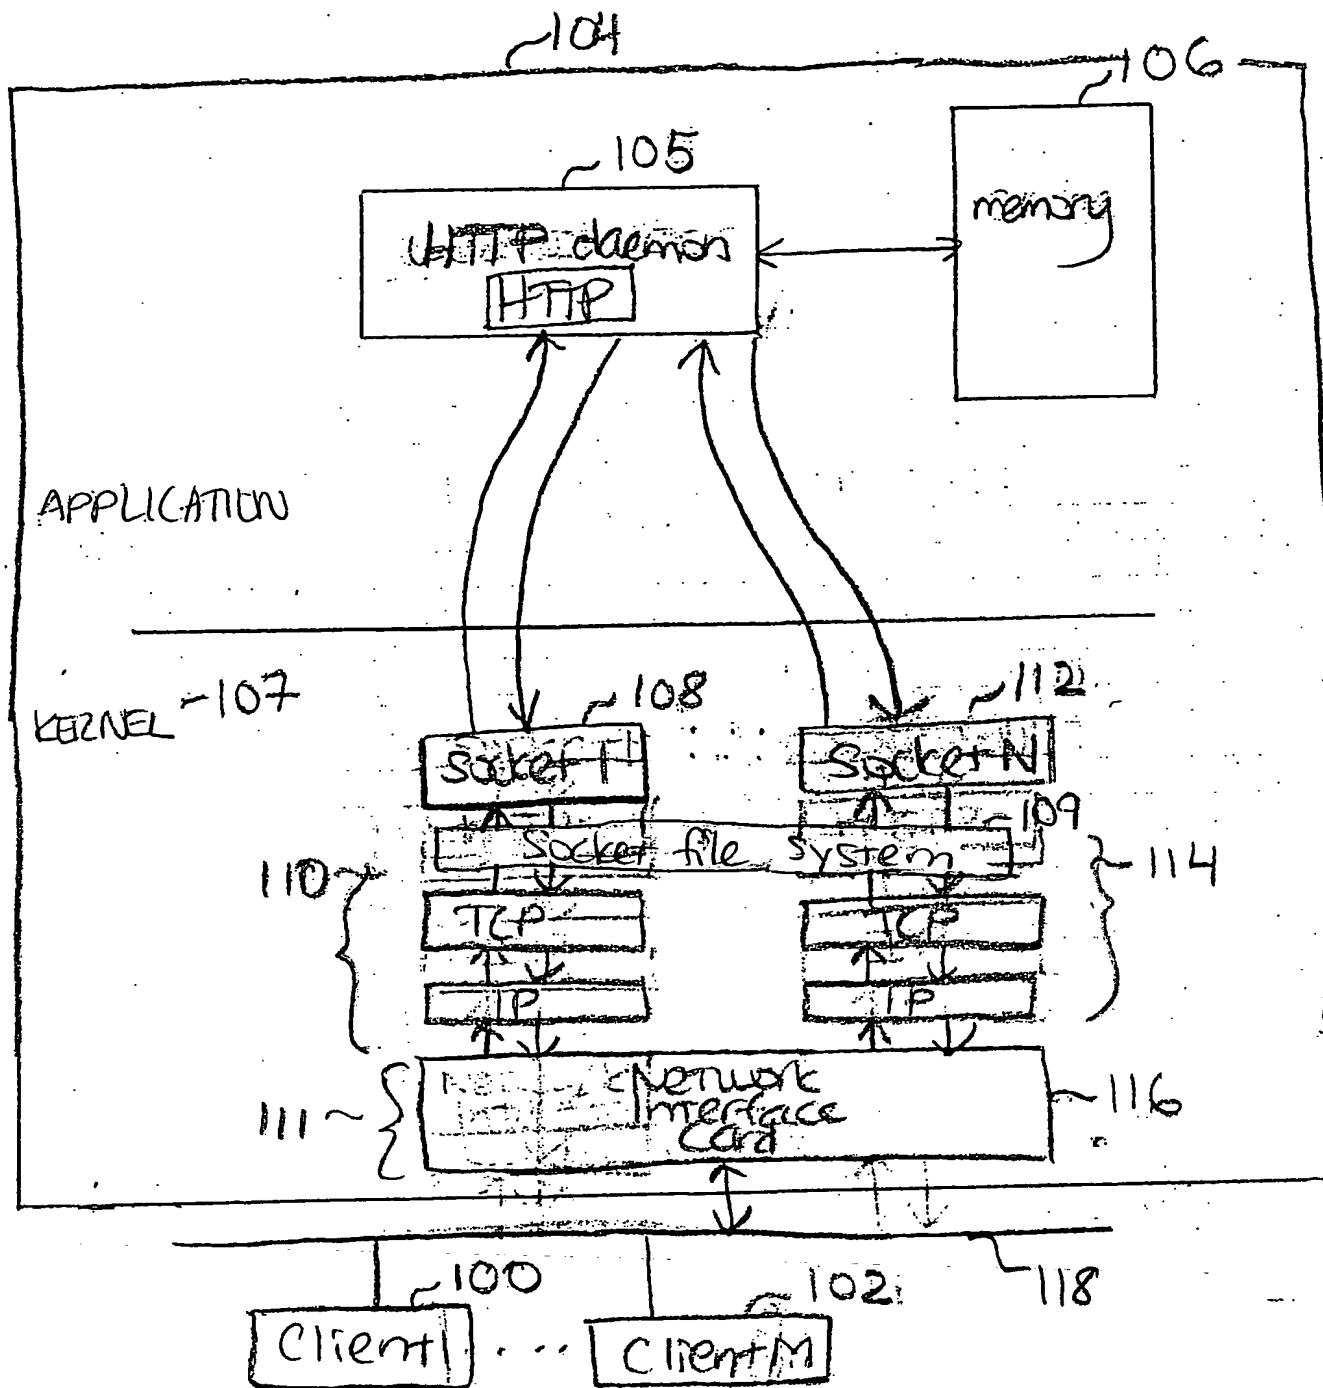 104
106
105
memory
HTTP daemon
HTTP
APPLICATION
KERNEL
107
108
112
Socket 1
Socket N
109
Socket file system
110
114
TCP
TCP
IP
IP
Network
Interface
Card
111
116
118
100
102
Client 1
Client M